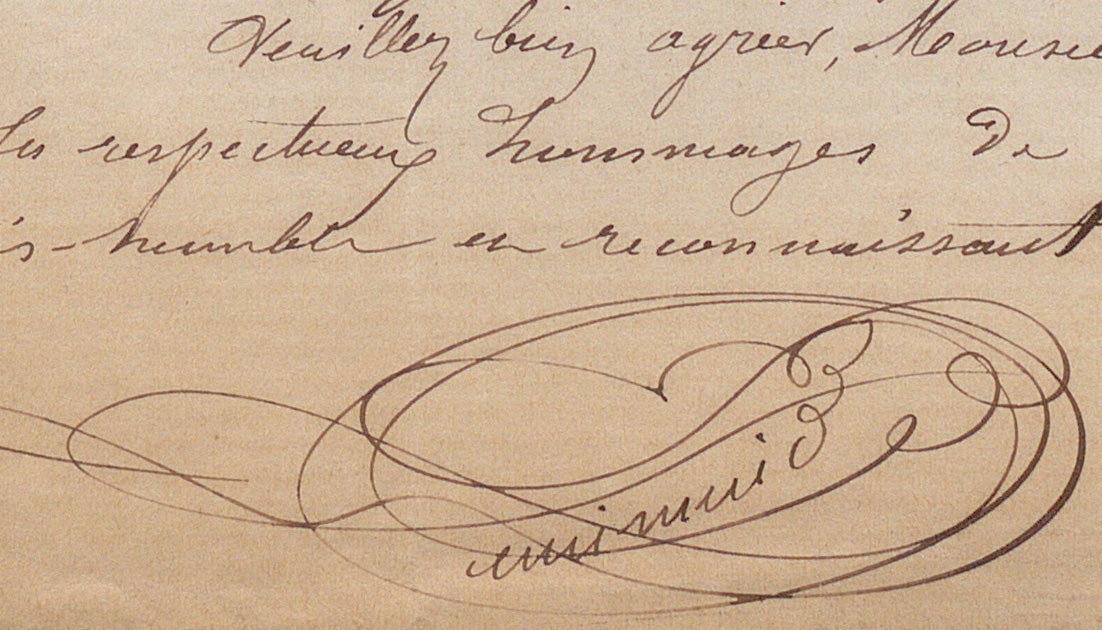 Veuillez bien agréer, Monsie
les respectueux hommages de
is-humble et reconnaissant